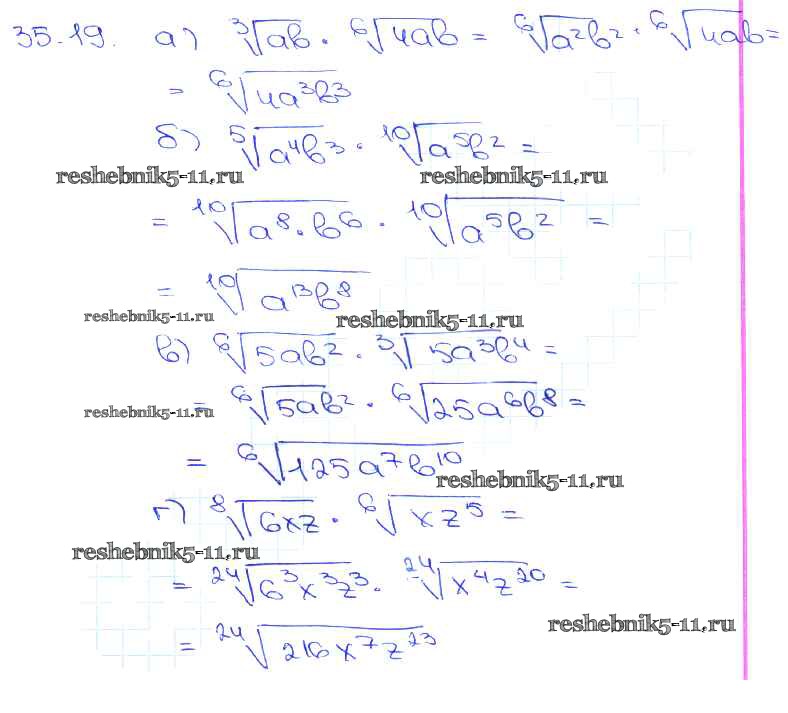 35.19. а) ∛ab · ⁶√4ab = ⁶√a²b² · ⁶√4ab =
= ⁶√4a³b³
б) ⁵√a⁴b³ · ¹⁰√a⁵b² =
reshebnik5-11.ru reshebnik5-11.ru
= ¹⁰√a⁸·b⁶ · ¹⁰√a⁵b² =
= ¹⁰√a¹³b⁸
reshebnik5-11.ru reshebnik5-11.ru
в) ⁶√5ab² · ³√5a³b⁴ =
= ⁶√5ab² · ⁶√25a⁶b⁸ =
reshebnik5-11.ru
= ⁶√125a⁷b¹⁰
reshebnik5-11.ru
г) ⁸√6xz · ⁶√xz⁵ =
reshebnik5-11.ru
= ²⁴√6³x³z³ · ²⁴√x⁴z²⁰ =
reshebnik5-11.ru
= ²⁴√216x⁷z²³